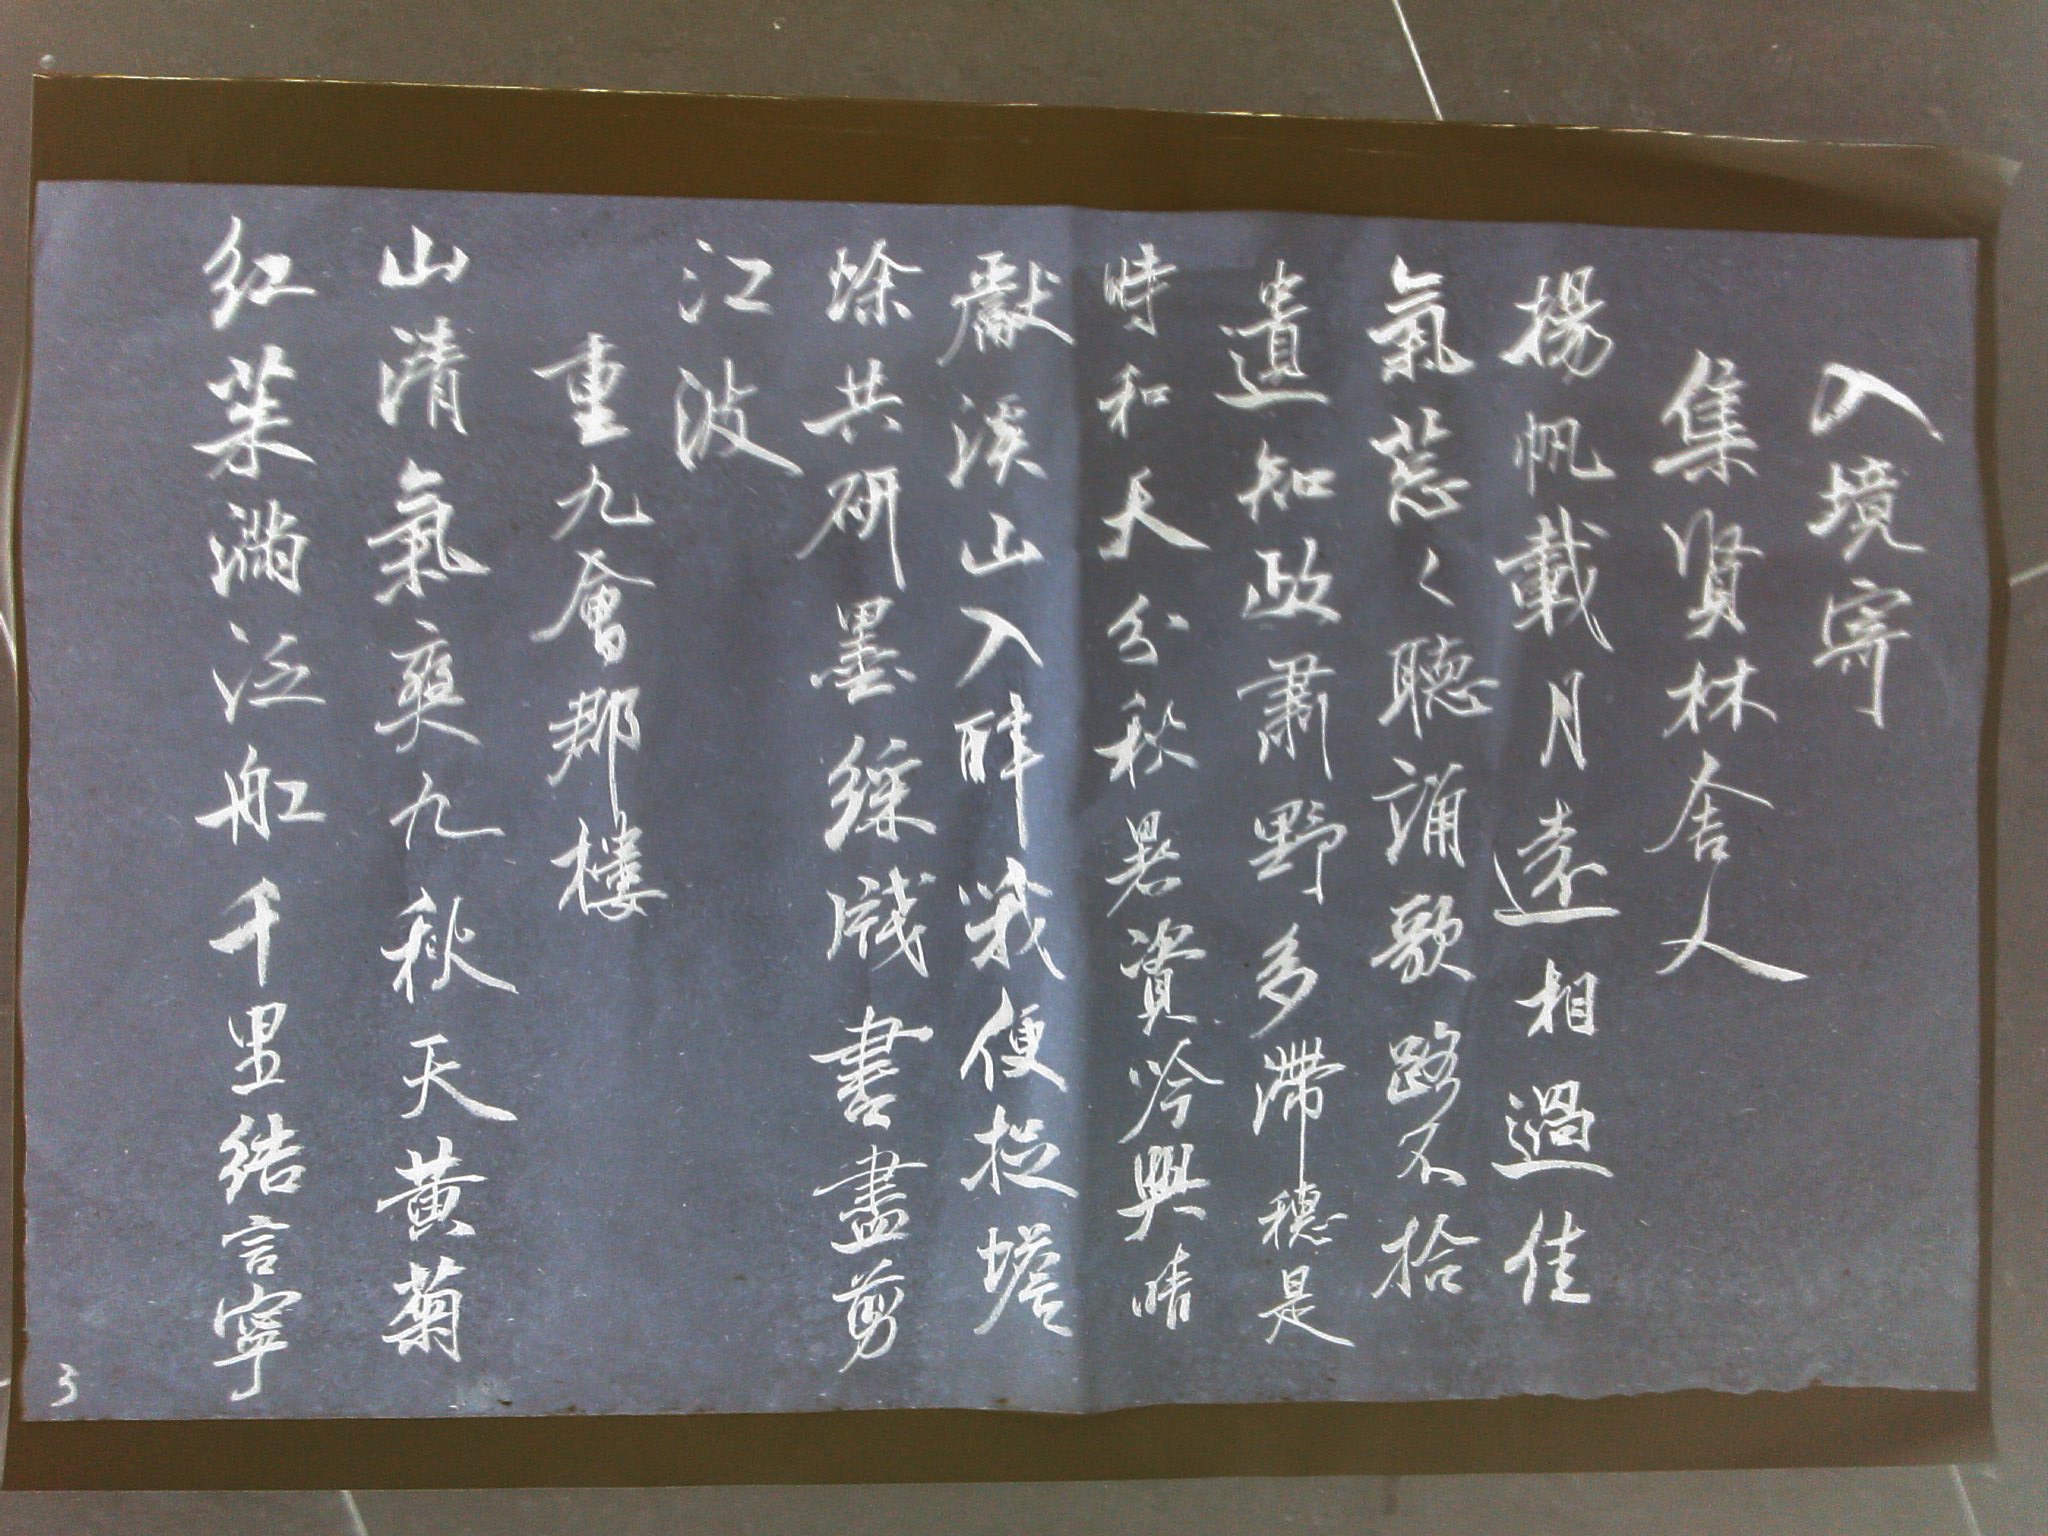 入境寄
集賢林舍人
揚帆載月遠相過佳
氣葱々聽誦歌路不拾
遺知政肅野多滯穗是
時和天分秋暑資吟興晴
獻溪山入醉哦便捉蟾
蜍共研墨綵牋書盡剪
江波
重九會郡樓
山清氣爽九秋天黃菊
紅茱滿泛舡千里結言寧
3